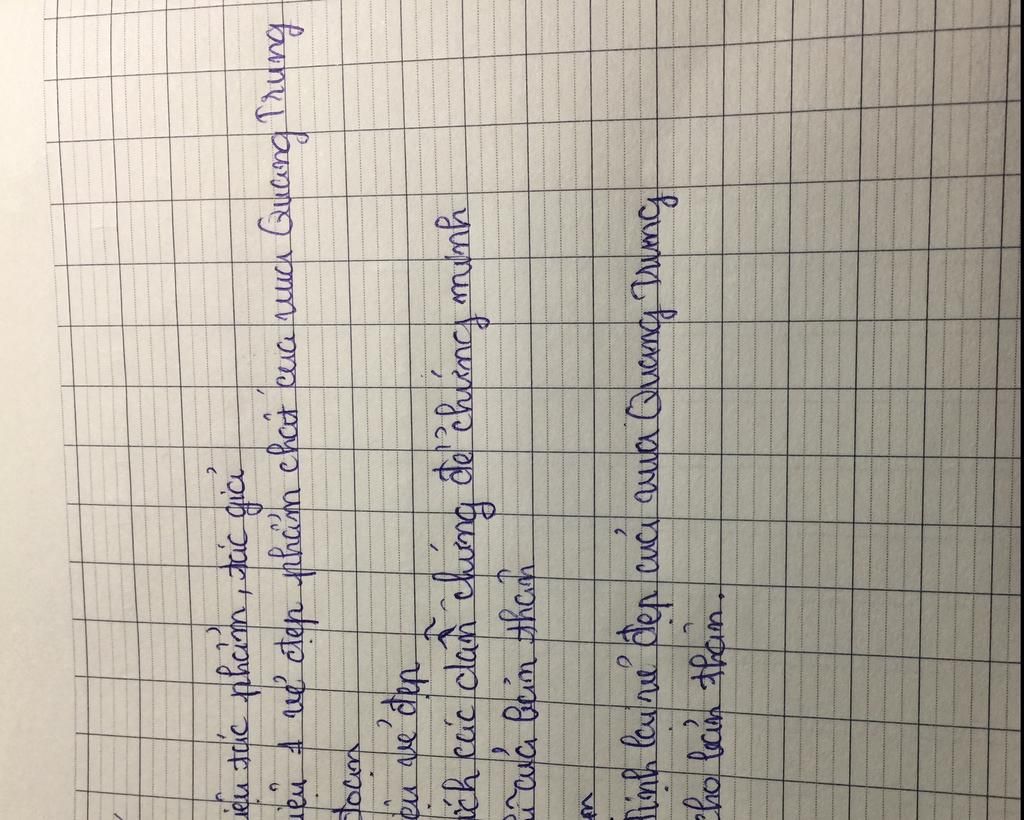 iệu tác phẩm, tác giả
iệu 1 vẻ đẹp phẩm chất của vua Quang Trung
đoạn
vẻ đẹp
ích các dẫn chứng để chứng minh
ĩ của bản thân
định lại vẻ đẹp của vua Quang Trung
cho bản thân.